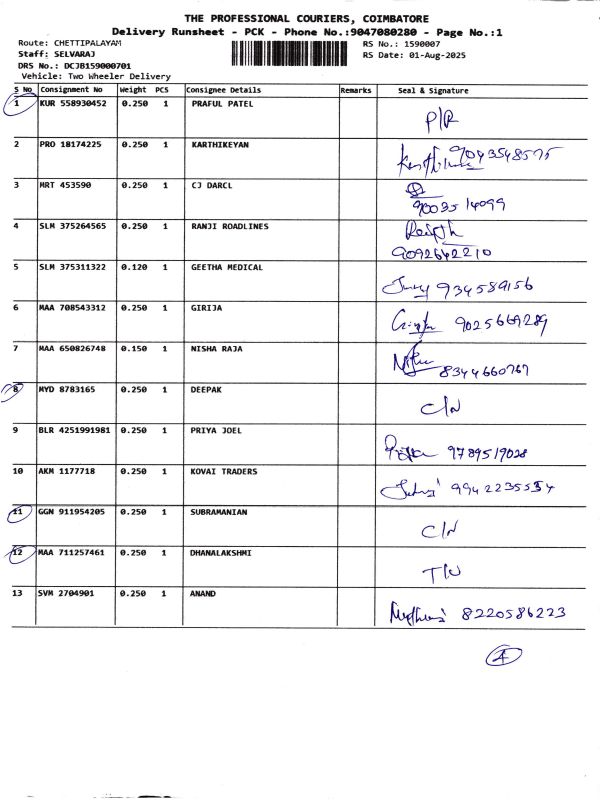 THE PROFESSIONAL COURIERS, COIMBATORE
Delivery Runsheet - PCK - Phone No.:9047080280 - Page No.:1
Route: CHETTIPALAYAM RS No.: 1590007
Staff: SELVARAJ RS Date: 01-Aug-2025
DRS No.: DCJB159000701
Vehicle: Two Wheeler Delivery
S No Consignment No Weight PCS Consignee Details Remarks Seal & Signature
1 KUR 558930452 0.250 1 PRAFUL PATEL P/R
2 PRO 18174225 0.250 1 KARTHIKEYAN 9043548575
3 MRT 453590 0.250 1 CJ DARCL 9003514099
4 SLM 375264565 0.250 1 RANJI ROADLINES
9092642210
5 SLM 375311322 0.120 1 GEETHA MEDICAL 934589156
6 MAA 708543312 0.250 1 GIRIJA 9025669289
7 MAA 650826748 0.150 1 NISHA RAJA 8344660767
8 MYD 8783165 0.250 1 DEEPAK C/N
9 BLR 4251991981 0.250 1 PRIYA JOEL 9789519028
10 AKM 1177718 0.250 1 KOVAI TRADERS 9942235554
11 GGN 911954205 0.250 1 SUBRAMANIAN C/N
12 MAA 711257461 0.250 1 DHANALAKSHMI
13 SVM 2704901 0.250 1 ANAND 8220586223